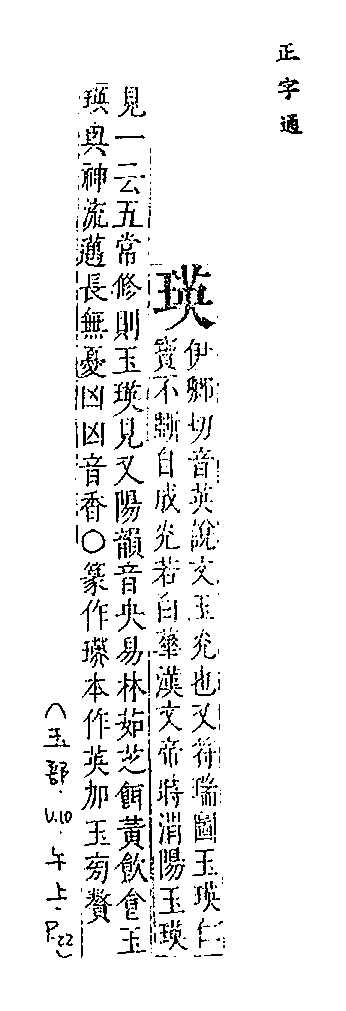 正字通
瑛
伊卿切音英說文玉光也又符瑞圖玉瑛仁
寶不斵自成光若白華漢文帝時渭陽玉瑛
見一云五常修則玉瑛見又陽韻音央易林茹芝餌黃飲食玉
瑛與神流通長無憂凶凶音香○篆作瓔本作英加玉旁贅
(玉部.V.10.午上.P.22)